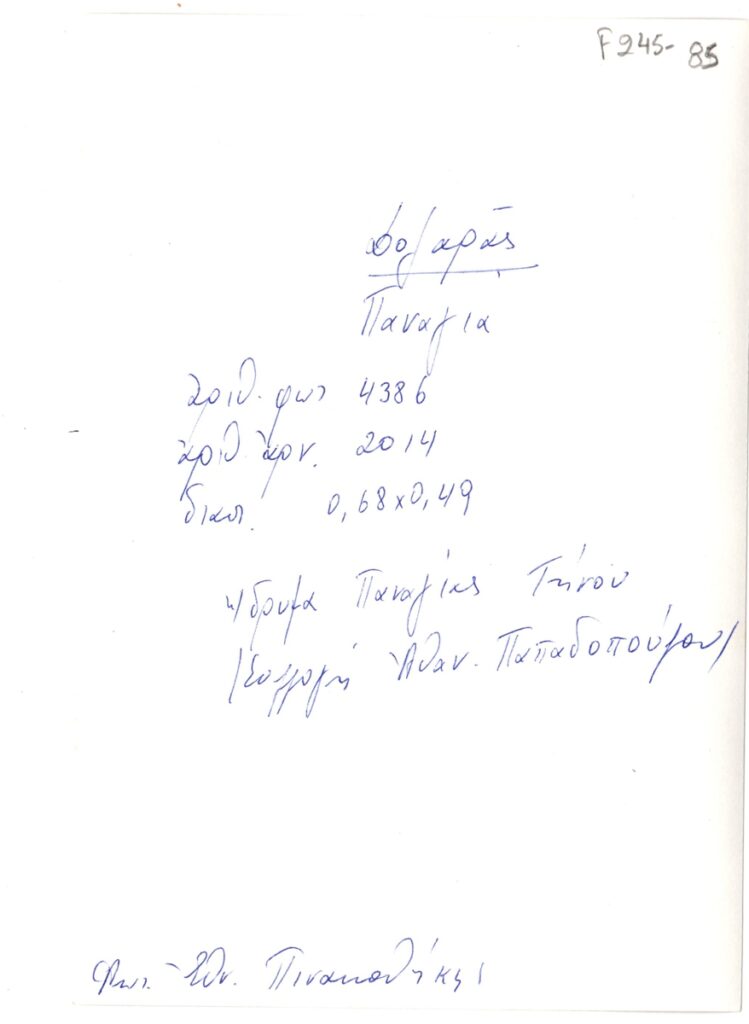 F245-85
Δοξαρᾶς
Παναγία
ἀριθ. φωτ 4386
ἀριθ ἀρν. 2014
διαστ. 0,68x0,49
Ἵδρυμα Παναγίας Τήνου
(Συλλογή Ἀθαν. Παπαδοπούλου)
Φωτ. Ἐθν. Πινακοθήκης